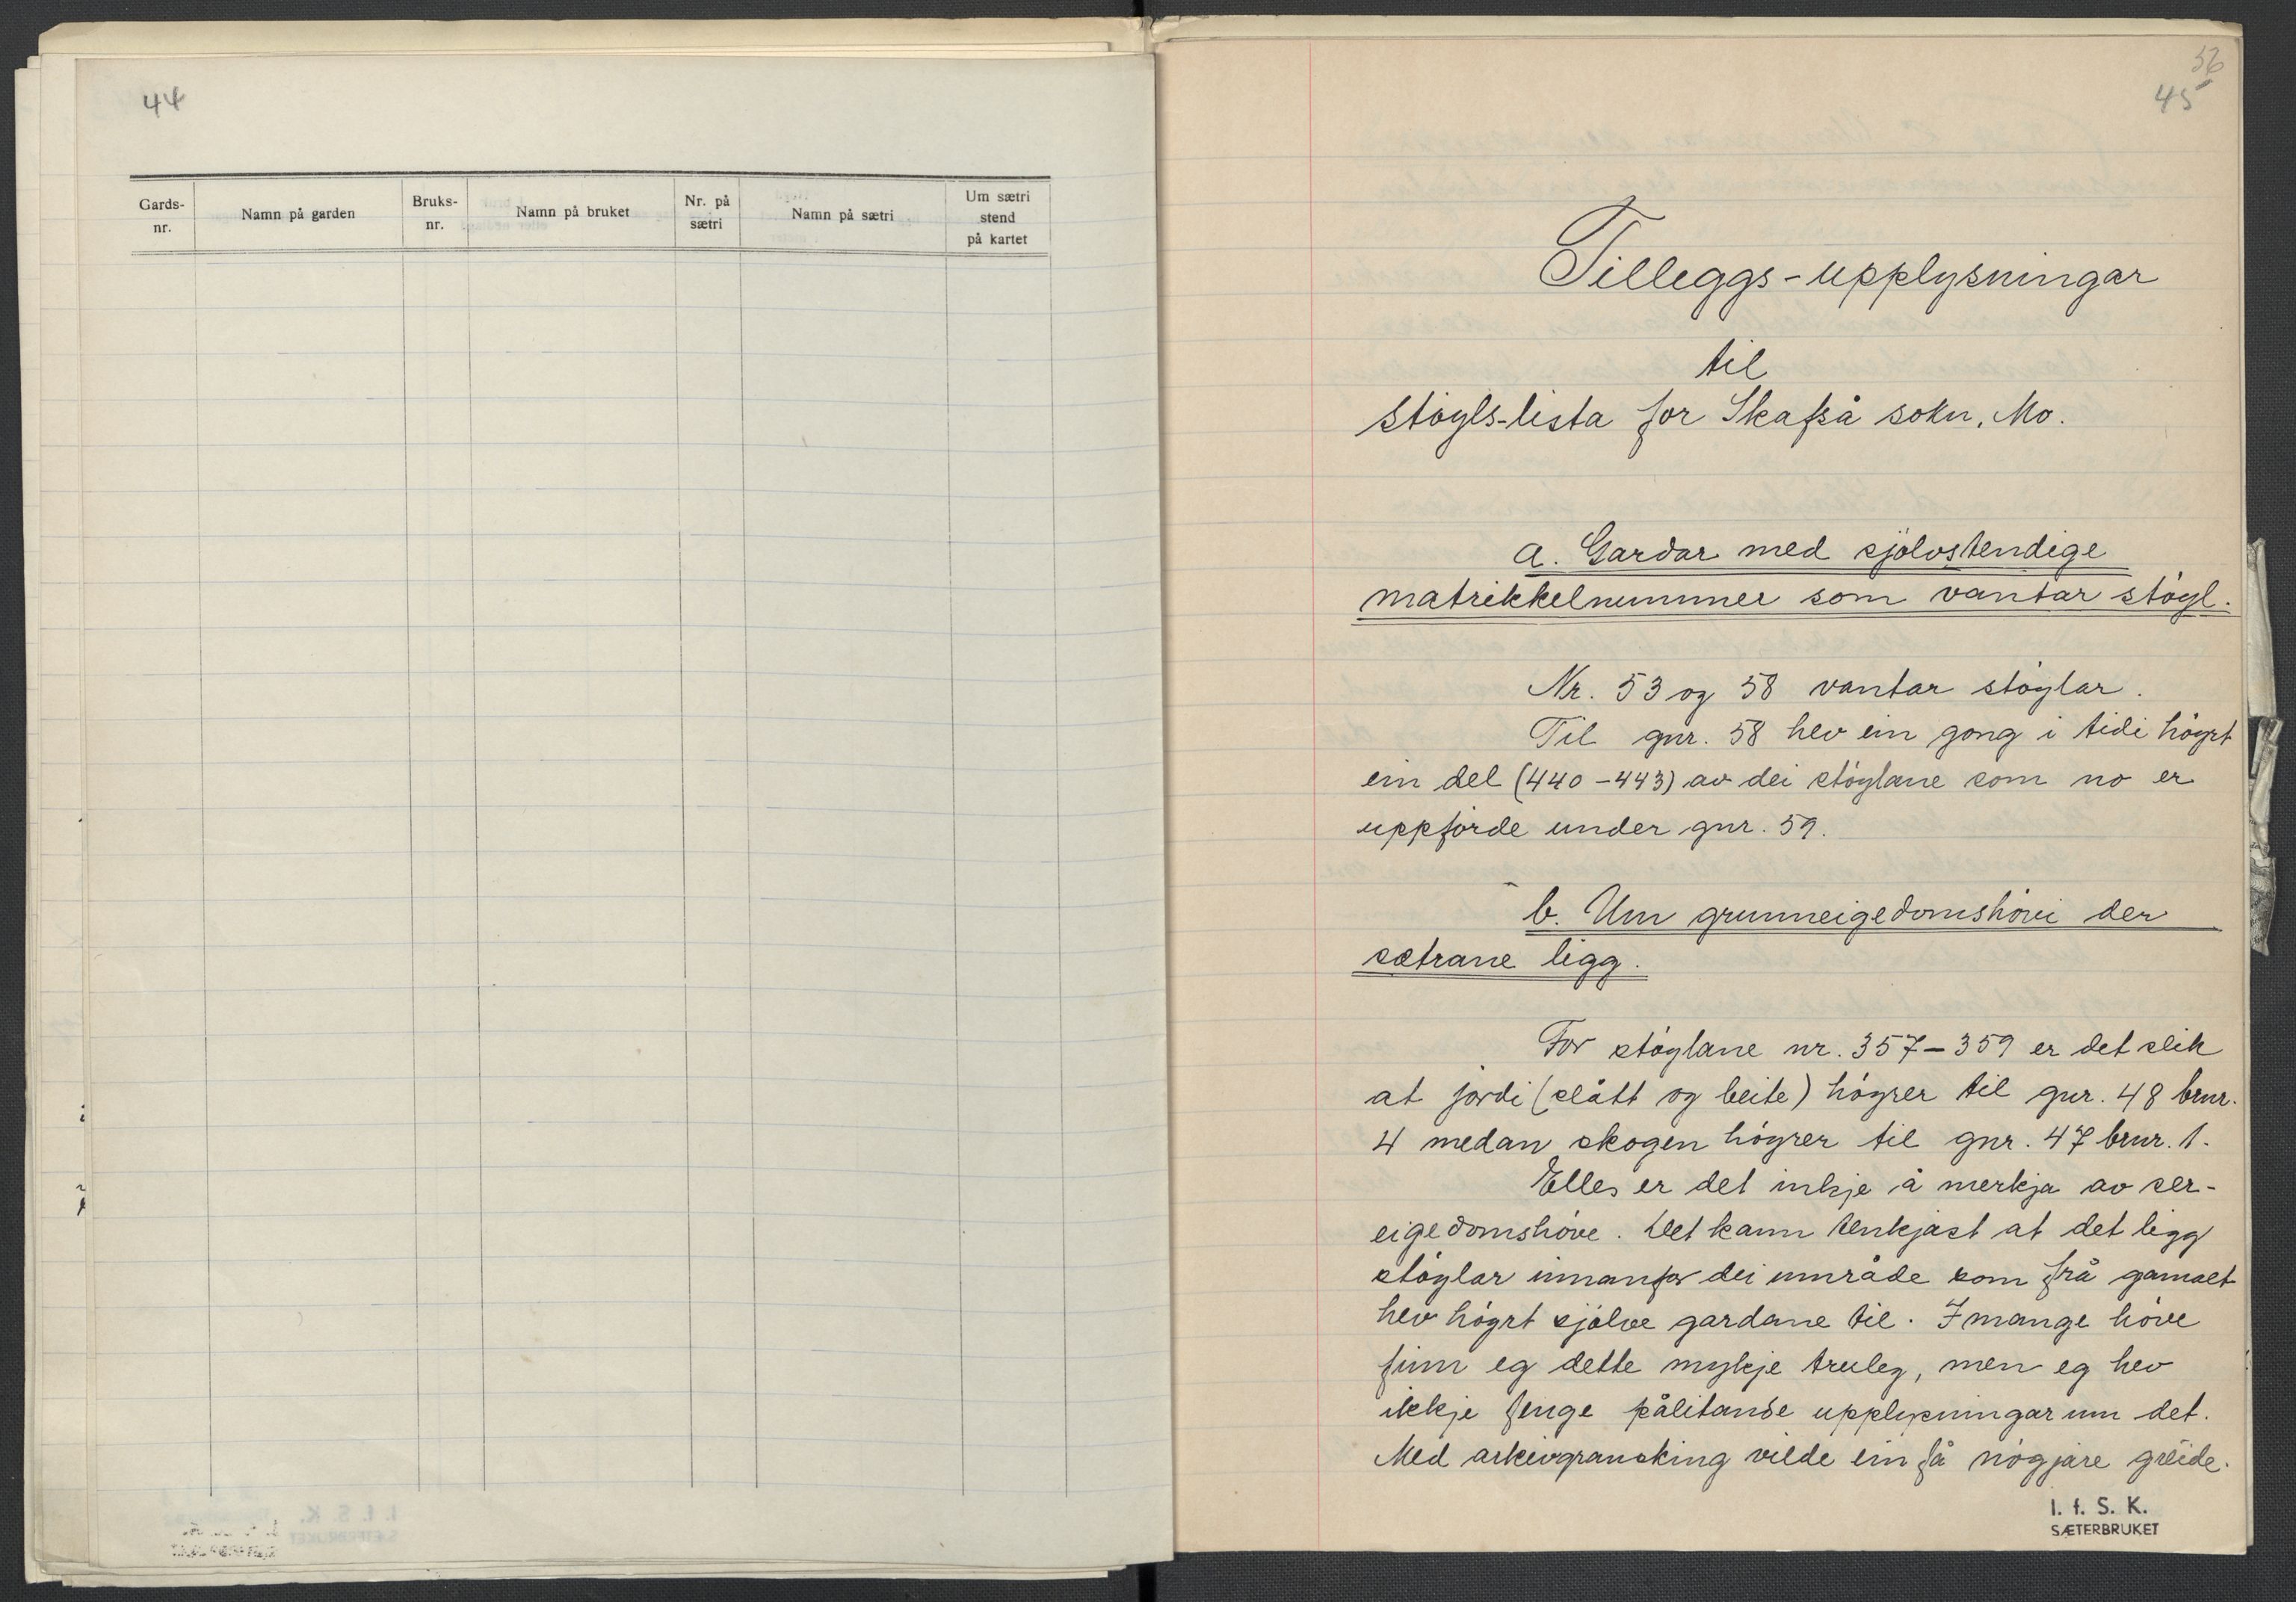 44
Gards-
nr.
Namn på garden
Bruks-
nr.
Namn på bruket
Nr. på
sætri
Namn på sætri
Um sætri
stend
på kartet
36
45
Tilleggs-upplysningar
til
støyls-lista for Skafså sokn, Mo.
a. Gardar med sjølvstendige
matrikkelnummer som vantar støyl.
Nr. 53 og 58 vantar støylar.
Til gnr. 58 hev ein gong i tidi høyrt
ein del (440-443) av dei støylane som no er
uppførde under gnr. 59.
b. Um grunneigedomshøvi der
sætrane ligg.
For støylane nr. 357-359 er det slik
at jordi (slått og beite) høyrer til gnr. 48 brnr.
4 medan skogen høyrer til gnr. 47 brnr. 1.
Elles er det inkje å merkja av ser-
eigedomshøve. Det kann tenkjast at det ligg
støylar innanfor dei umråde som frå gamalt
hev høyrt sjølve gardane til. I mange høve
finn eg dette mykje truleg, men eg hev
ikkje fenge pålitande upplysningar um det.
Med arkivgransking vilde ein få nøgjare greide.
I. f. S. K.
SÆTERBRUKET